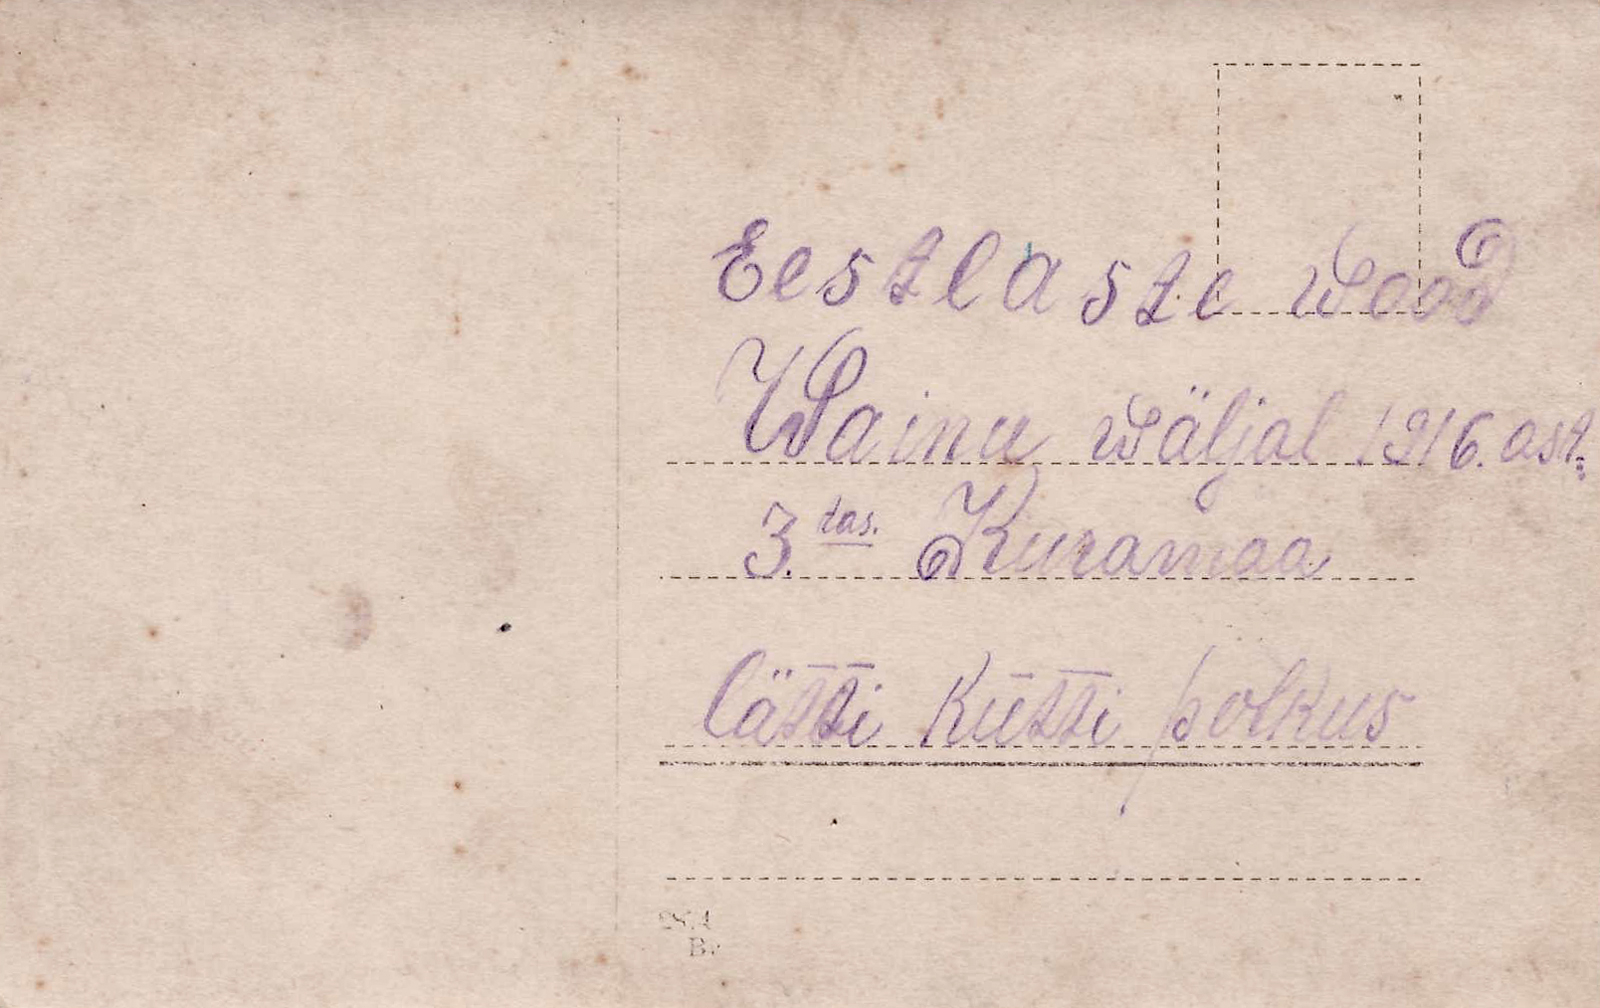 Eestlaste wood
Wainu wäljal 1916. ast.
3. das. Kuramaa
lätti Kütti polkus